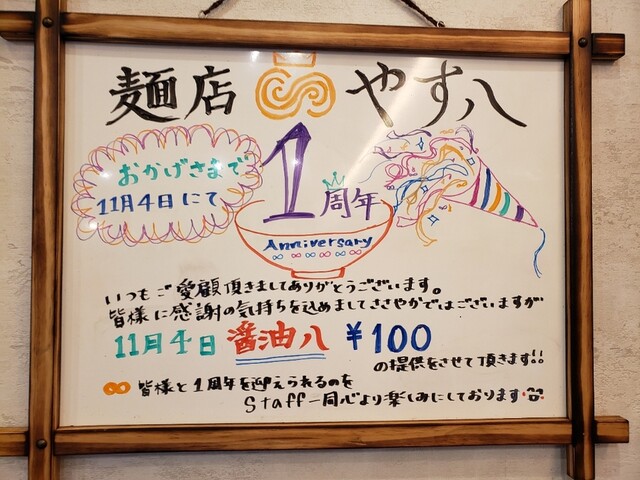 麺店 やす八
おかげさまで
11月4日にて
1周年
Anniversary
いつもご愛顧頂きましてありがとうございます。
皆様に感謝の気持ちを込めましてささやかではございますが
11月4日 醤油八 ¥100
の提供をさせて頂きます!!
皆様と1周年を迎えられるのを
Staff一同心より楽しみにしております